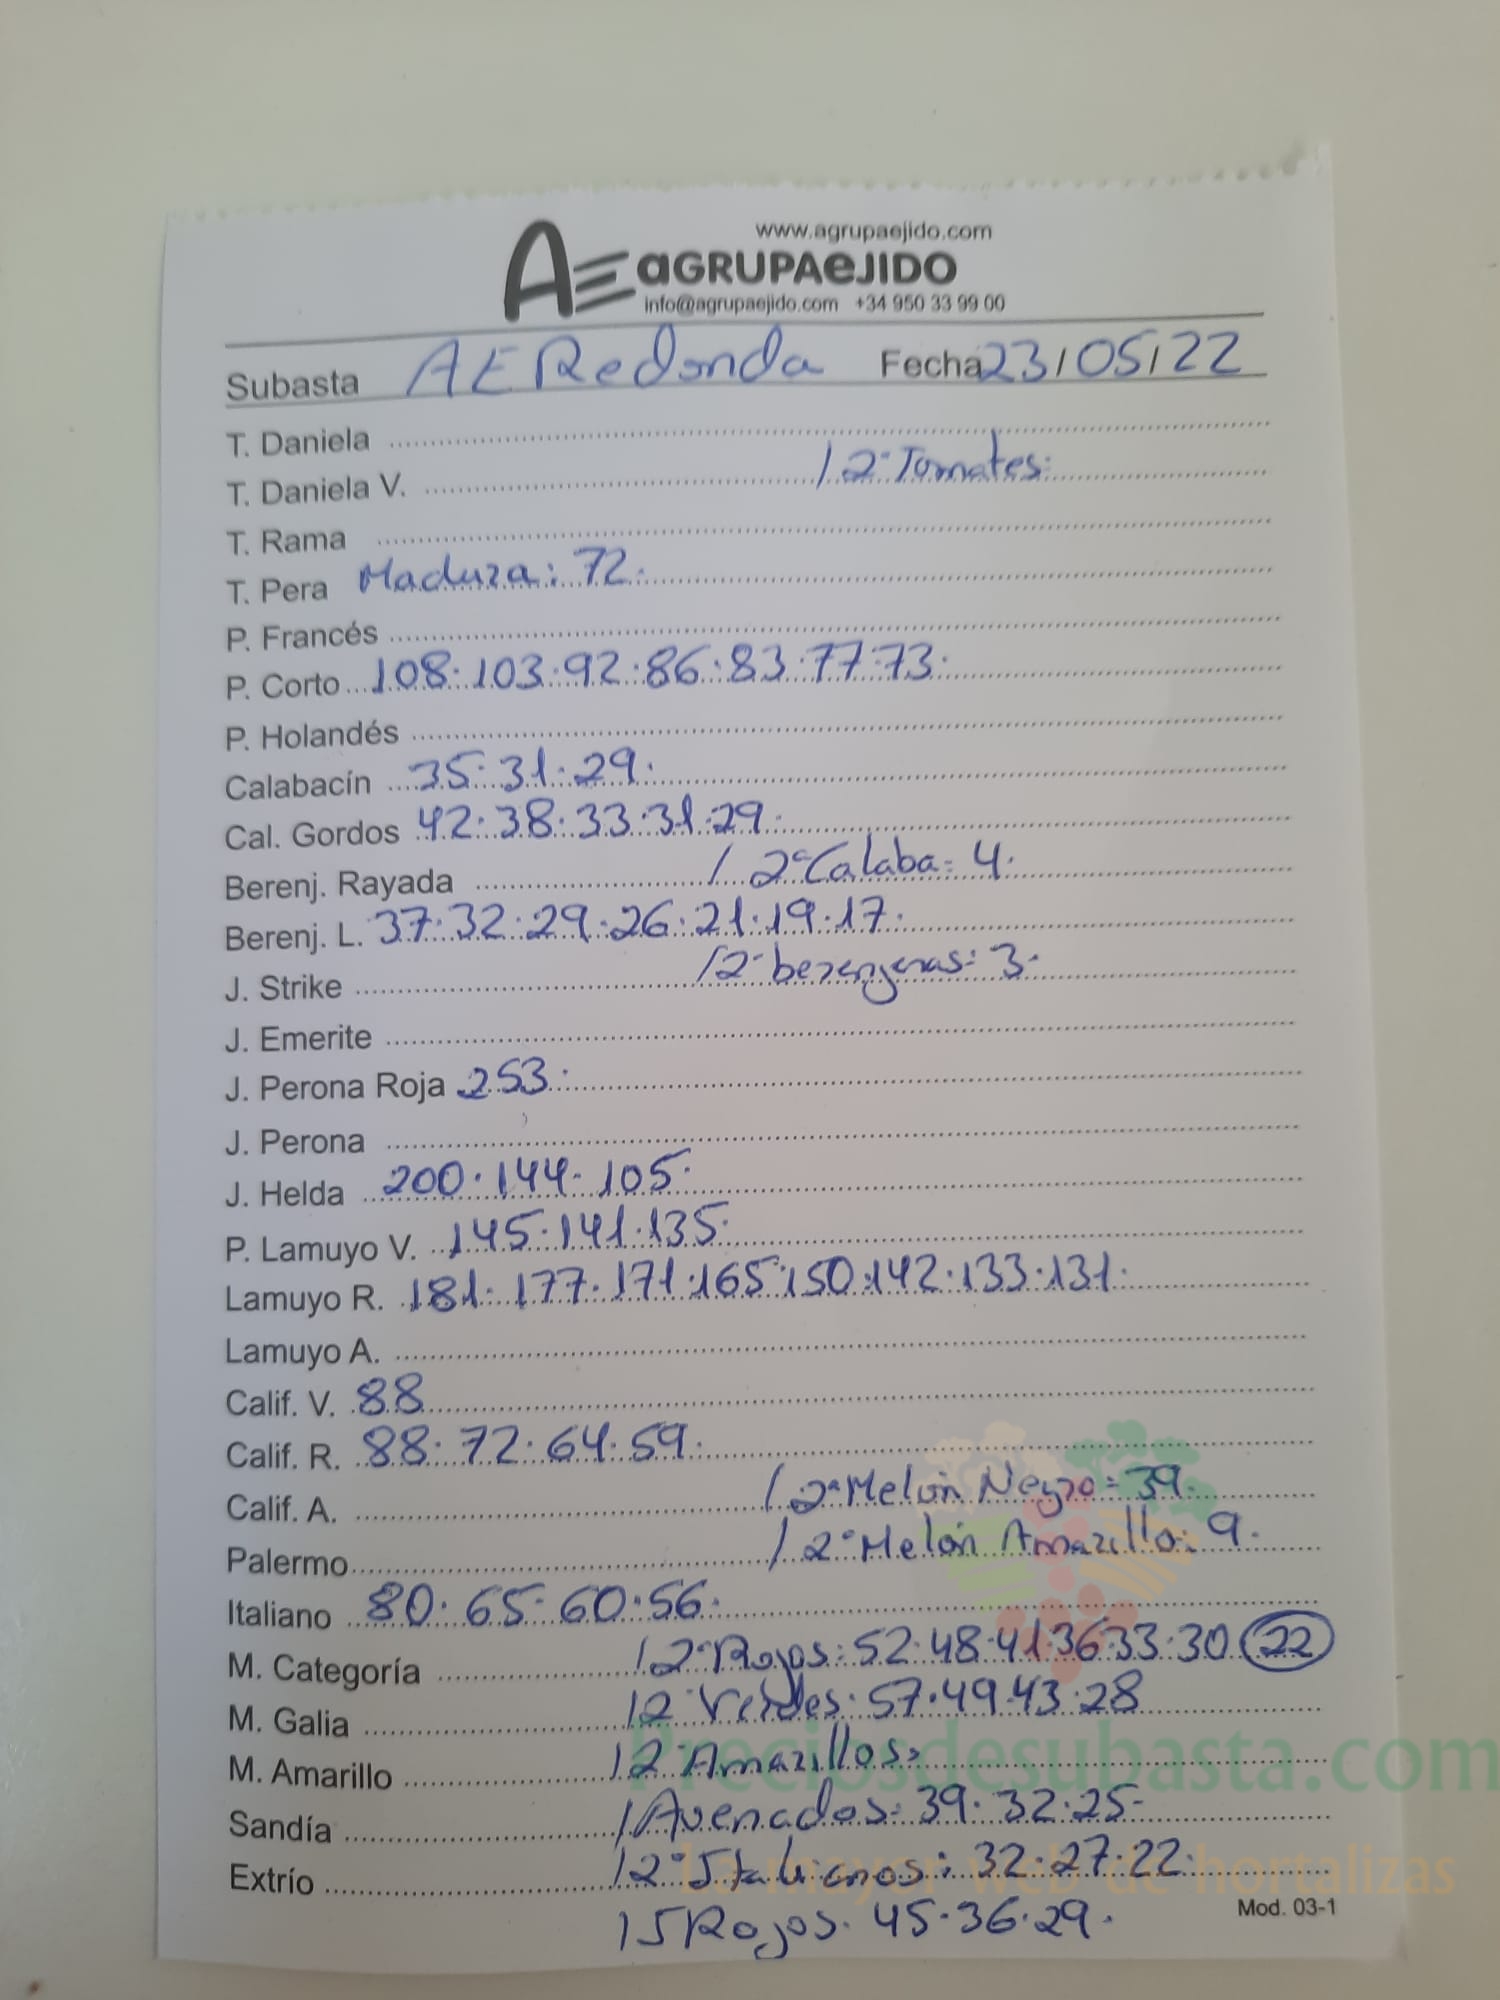 www.agrupaejido.com
AE aGRUPAeJIDO
info@agrupaejido.com +34 950 33 99 00
Subasta AE Redonda Fecha 23/05/22
T. Daniela
T. Daniela V. / 2ª Tomates:
T. Rama
T. Pera Madura: 72.
P. Francés
P. Corto 108. 103. 92. 86. 83. 77. 73.
P. Holandés
Calabacín 35. 31. 29.
Cal. Gordos 42. 38. 33. 31. 29.
Berenj. Rayada / 2ª Calaba= 4.
Berenj. L. 37. 32. 29. 26. 21. 19. 17.
J. Strike / 2ª berenjenas: 3.
J. Emerite
J. Perona Roja 253.
J. Perona
J. Helda 200. 144. 105.
P. Lamuyo V. 145. 141. 135.
Lamuyo R. 181. 177. 171. 165. 150. 142. 133. 131.
Lamuyo A.
Calif. V. 88
Calif. R. 88. 72. 64. 59.
Calif. A. / 2ª Melón Negro= 39.
Palermo / 2ª Melón Amarillo: 9.
Italiano 80. 65. 60. 56.
M. Categoría / 2ª Rojos: 52. 48. 41. 36. 33. 30 22
M. Galia / 2ª Verdes: 57. 49. 43. 28
M. Amarillo / 2ª Amarillos:
Preciosdesubasta.com
Sandía / Avenados: 39. 32. 25.
Extrío / 2ª Italianos: 32. 27. 22.
La mayor web de hortalizas
/ 5 Rojos. 45. 36. 29.
Mod. 03-1